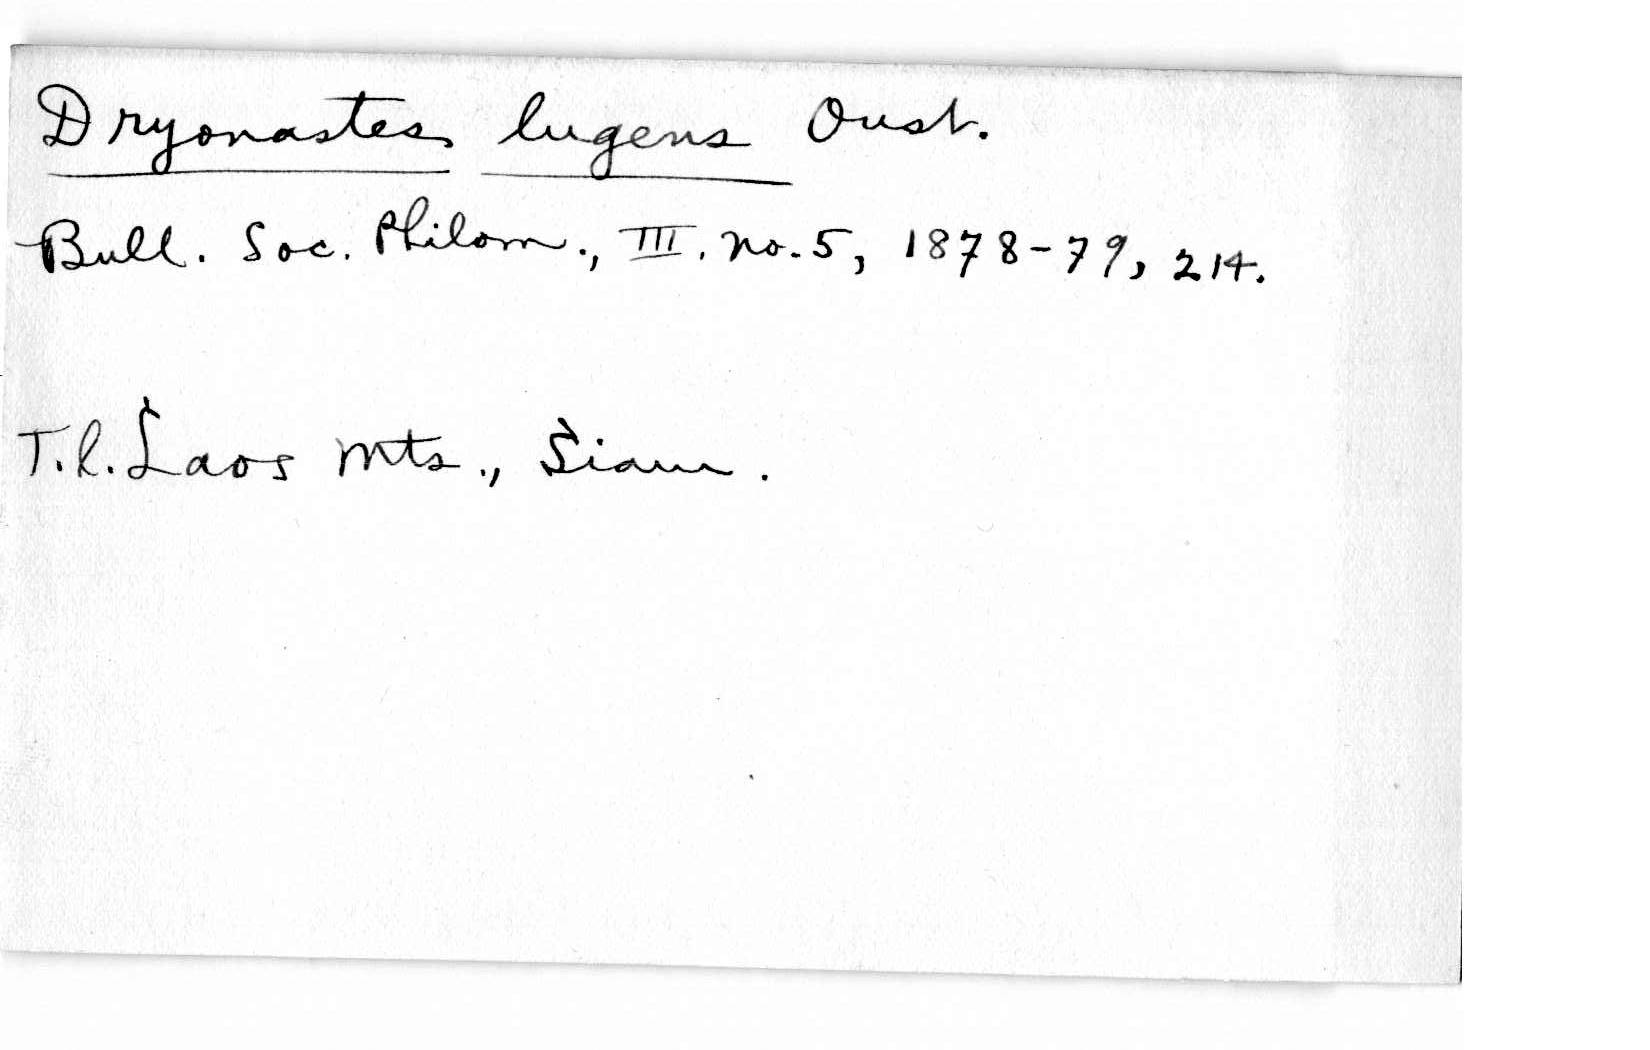 Dryonastes lugens Oust.
Bull. Soc. Philom., III. no. 5, 1878-79, 214.
T.l. Laos Mts., Siam.